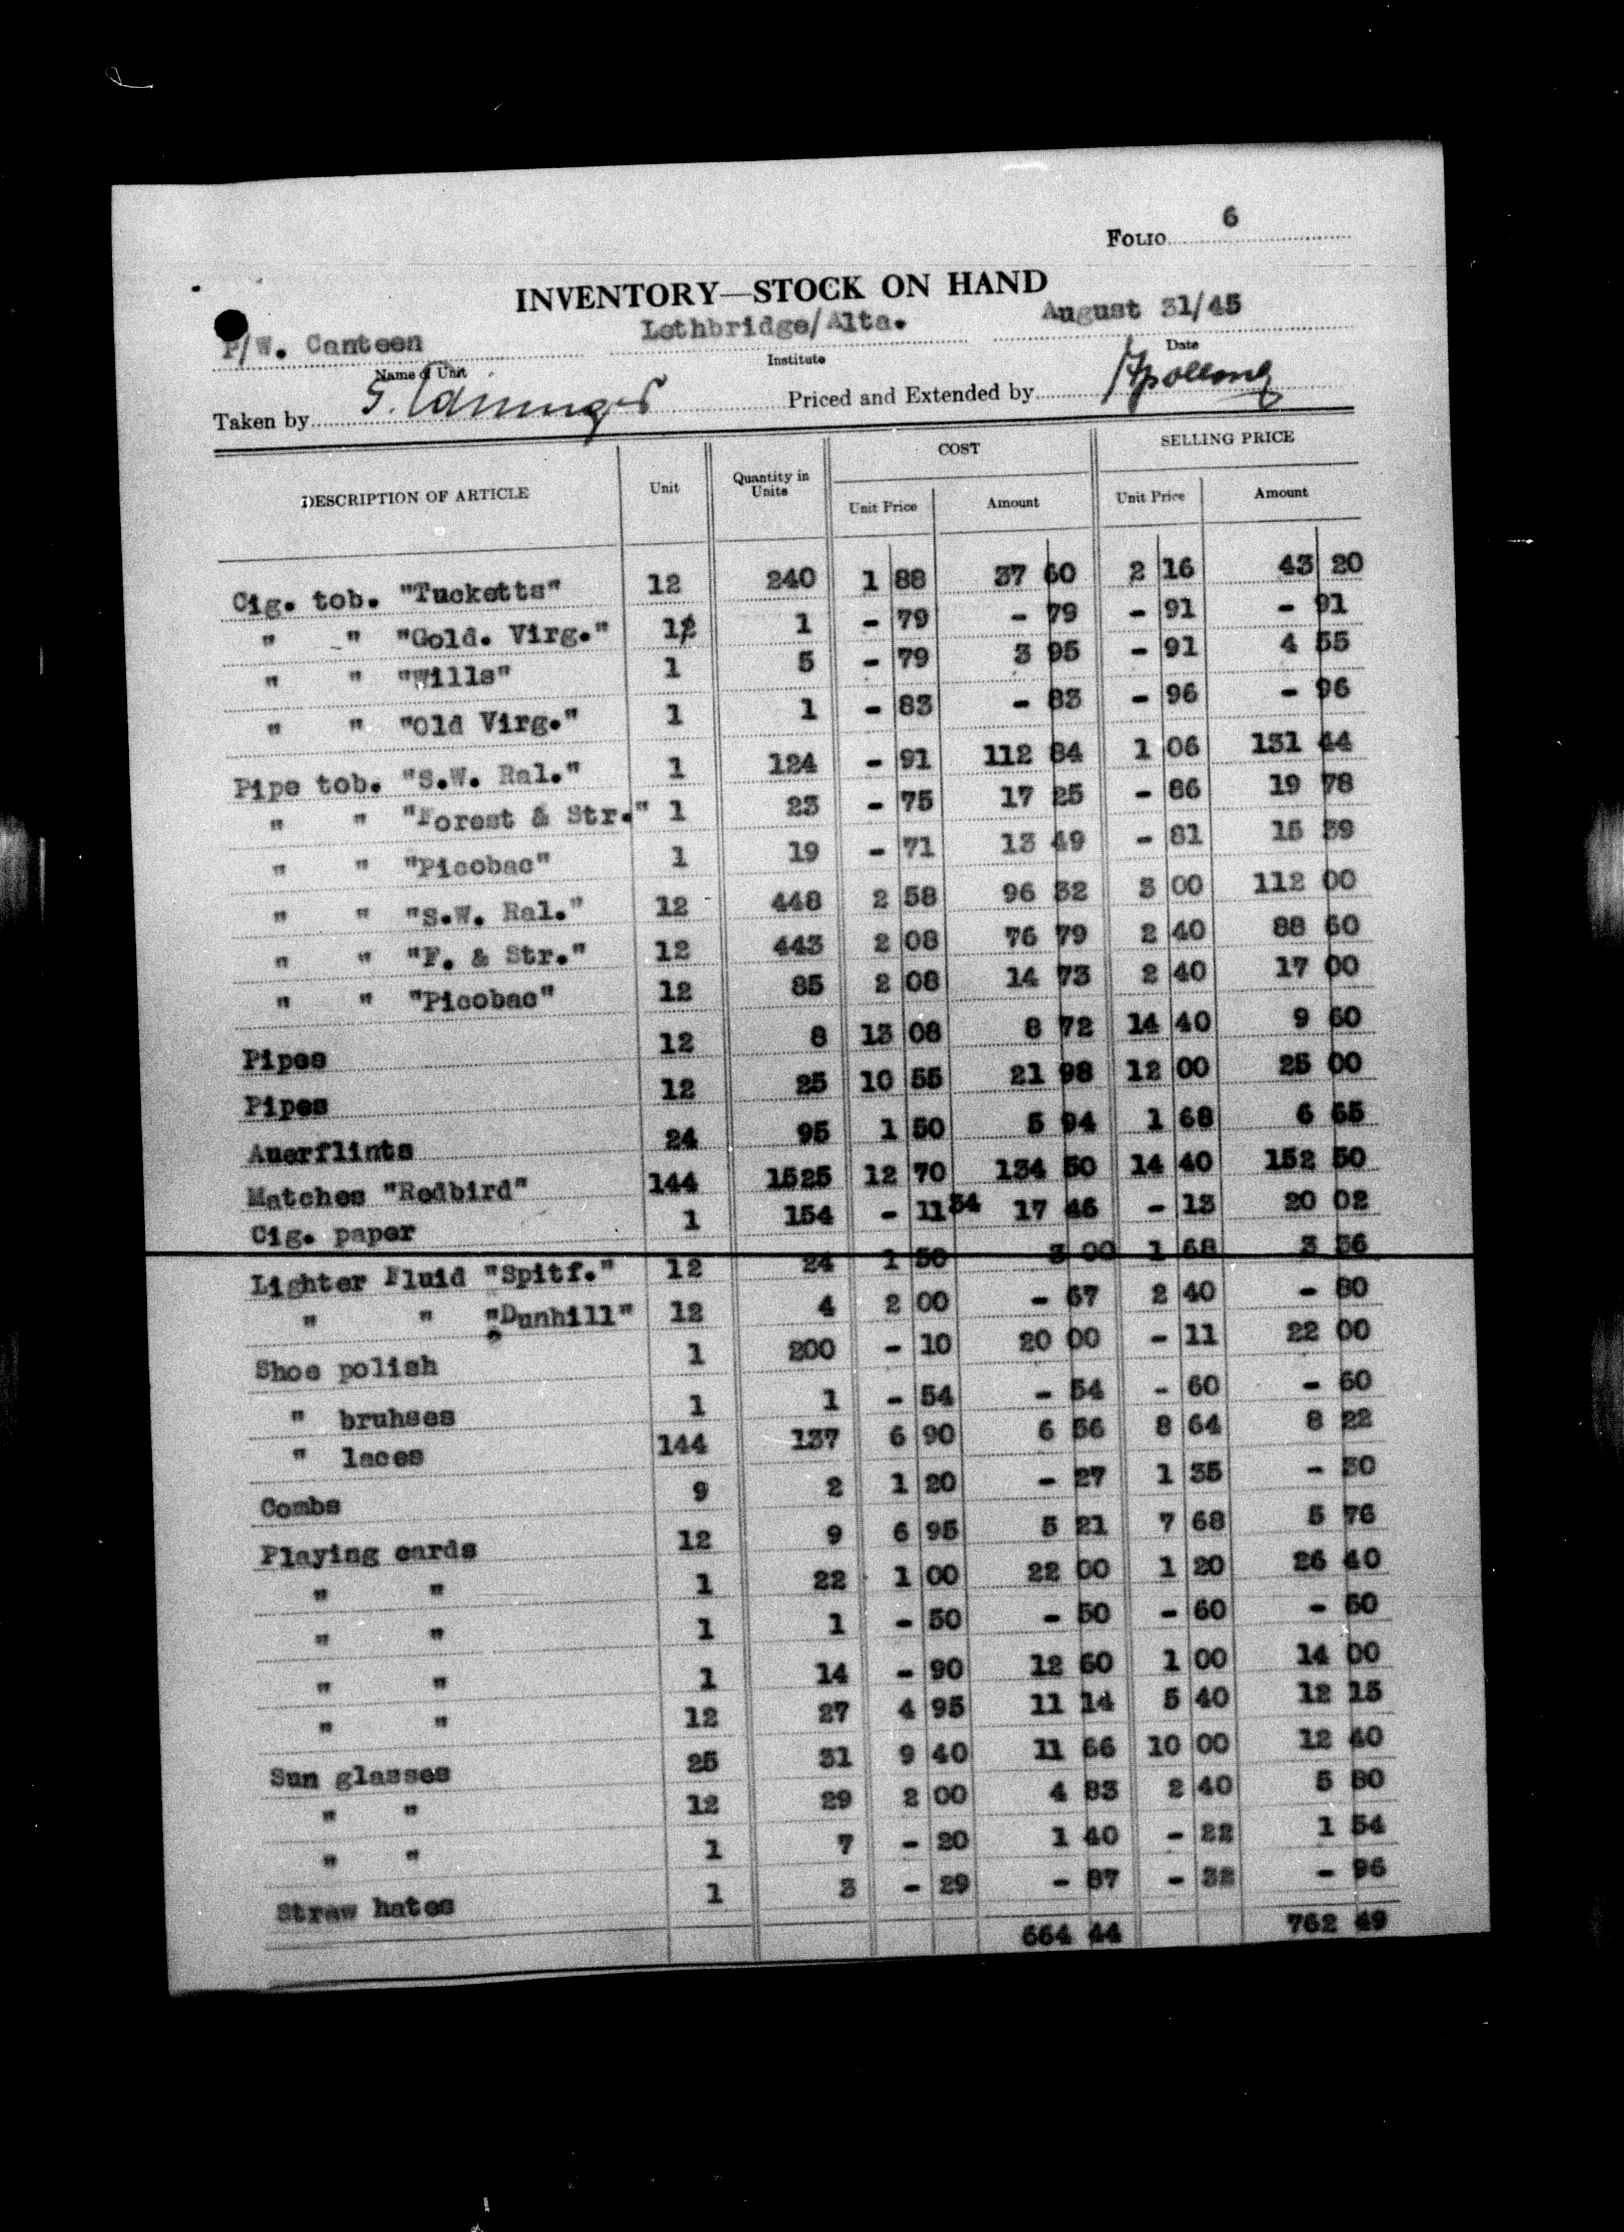 FOLIO 6
INVENTORY—STOCK ON HAND
P/W. Canteen Lethbridge/Alta. August 31/45
Name of Unit Institute Date
Taken by Priced and Extended by
COST SELLING PRICE
DESCRIPTION OF ARTICLE Unit Quantity in Units Unit Price Amount Unit Price Amount
Cig. tob. "Tucketts" 12 240 1 88 37 60 2 16 43 20
" " "Gold. Virg." 1 1 - 79 - 79 - 91 - 91
" " "Wills" 1 5 - 79 3 95 - 91 4 55
" " "Old Virg." 1 1 - 83 - 83 - 96 - 96
Pipe tob. "S.W. Ral." 1 124 - 91 112 84 1 06 131 44
" " "Forest & Str." 1 23 - 75 17 25 - 86 19 78
" " "Picobac" 1 19 - 71 13 49 - 81 15 39
" " "S.W. Ral." 12 448 2 58 96 32 3 00 112 00
" " "F. & Str." 12 443 2 08 76 79 2 40 88 60
" " "Picobac" 12 85 2 08 14 73 2 40 17 00
Pipes 12 8 13 08 8 72 14 40 9 60
Pipes 12 25 10 55 21 98 12 00 25 00
Auerflints 24 95 1 50 5 94 1 68 6 65
Matches "Redbird" 144 1525 12 70 134 50 14 40 152 50
Cig. paper 1 154 - 11 34 17 46 - 13 20 02
Lighter Fluid "Spitf." 12 24 1 50 3 00 1 68 3 36
" " "Dunhill" 12 4 2 00 - 67 2 40 - 80
Shoe polish 1 200 - 10 20 00 - 11 22 00
" bruhses 1 1 - 54 - 54 - 60 - 60
" laces 144 137 6 90 6 56 8 64 8 22
Combs 9 2 1 20 - 27 1 35 - 30
Playing cards 12 9 6 95 5 21 7 68 5 76
" " 1 22 1 00 22 00 1 20 26 40
" " 1 1 - 50 - 50 - 60 - 60
" " 1 14 - 90 12 60 1 00 14 00
" " 12 27 4 95 11 14 5 40 12 15
Sun glasses 25 31 9 40 11 66 10 00 12 40
" " 12 29 2 00 4 83 2 40 5 80
" " 1 7 - 20 1 40 - 22 1 54
Straw hates 1 3 - 29 - 87 - 32 - 96
664 44 762 49